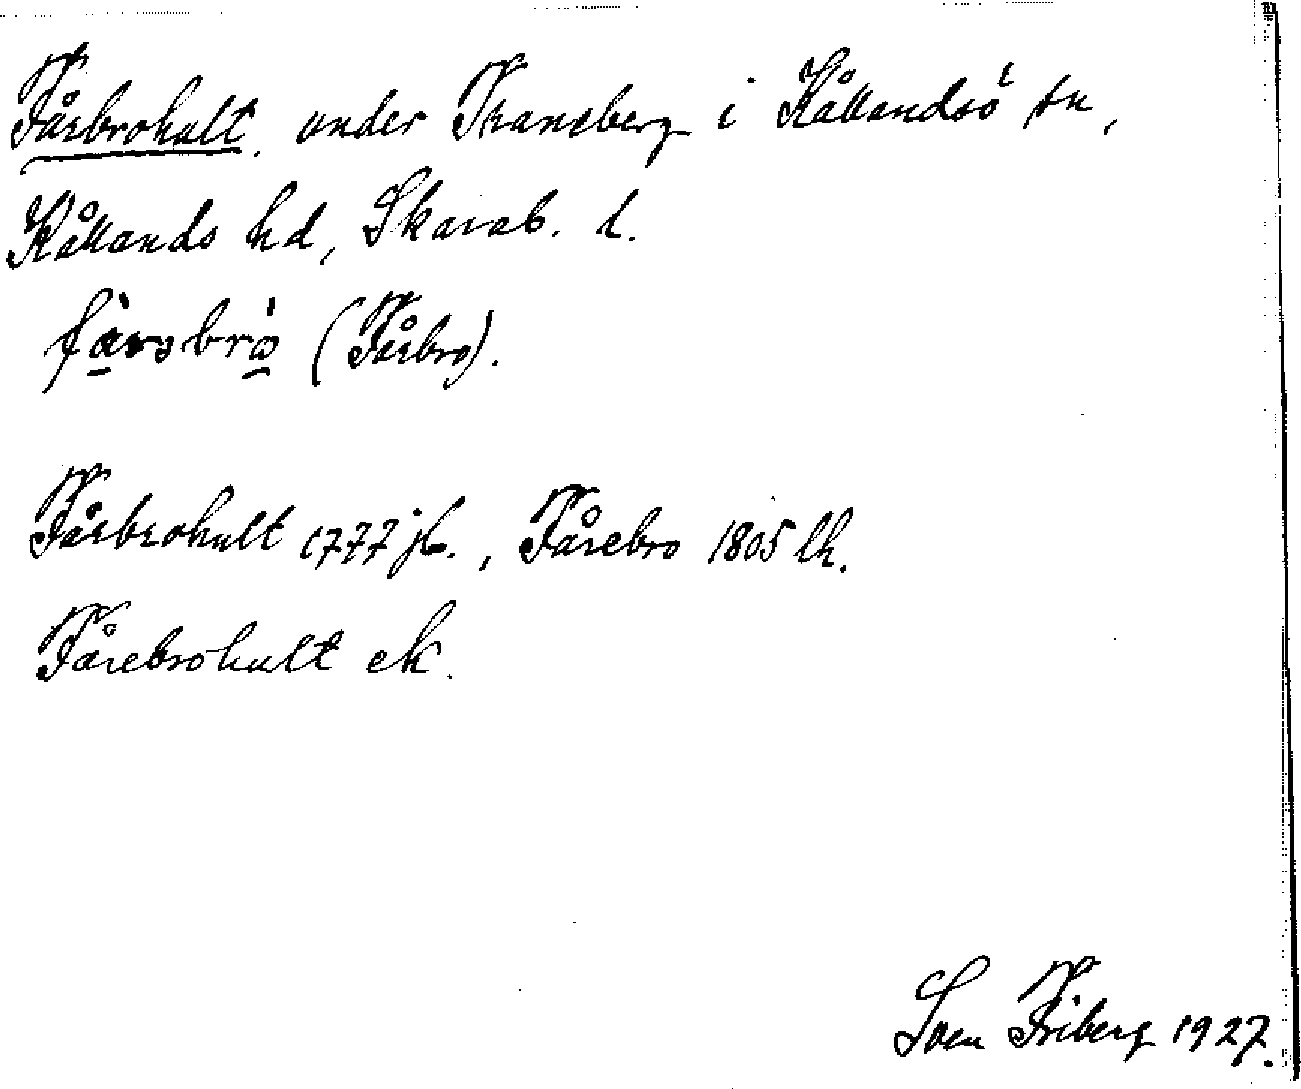 Fårbrohult. under Traneberg i Kållandsö sn,
Kållands hd, Skarab. l.
(Fårbro).
Fårbrohult 1777 jb., Fårebro 1805 lh.
Fårebrohult ek.
Sven Friberg 1927.